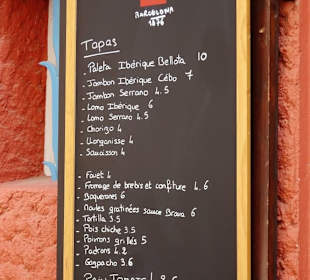 BARCELONA
1876
Tapas
- Paleta Ibérique Bellota 10
- Jambon Ibérique Cébo 7
- Jambon Serrano 4.5
- Lomo Ibérique 6
- Lomo Serrano 4.5
- Chorizo 4
- Llorganisse 4
- Saucisson 4
- Fouet 4
- Fromage de brebis et confiture 4.6
- Boquerones 6
- Moules gratinées sauce Brava 6
- Tortilla 3.5
- Pois chiche 3.5
- Poivrons grillés 5
- Padrons 4.2
- Gaspacho 3.6